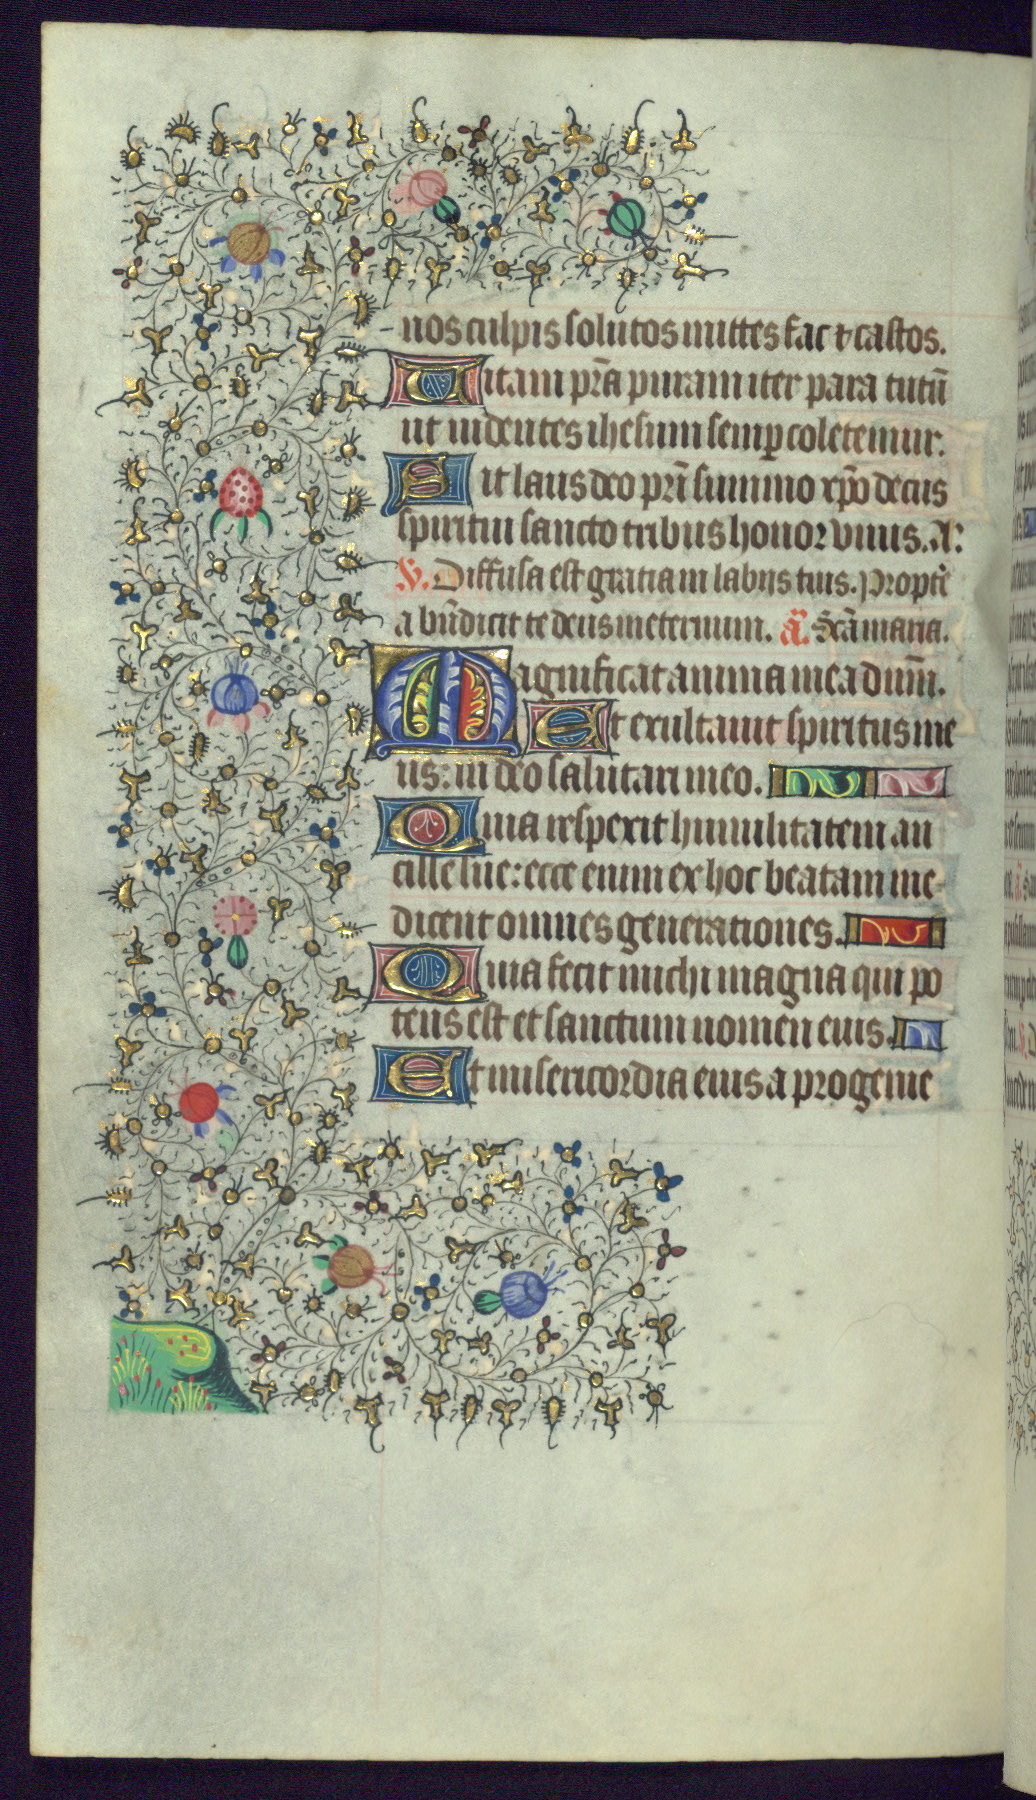 nos culpis solutos mittes fac ⁊ castos.
Uitam prā puram iter para tutū
ut uidentes ihesum semp̱ coletemur.
Sit laus deo pr̄i summo xp̄o decus
spiritui sancto tribus honor vnus. A:
V. Diffusa est gratia in labiis tuis. Propte
a bn̄dixit te deus in eternum. ā. Scā maria.
Magnificat anima mea dum̄.
Et exultauit spiritus me
us: in deo salutari meo.
Quia respexit humilitatem an
cille sue: ecce enim ex hoc beatam me
dicent omnes generationes.
Quia fecit michi magna qui po
tens est et sanctum nomen eius.
Et misericordia eius a progenie